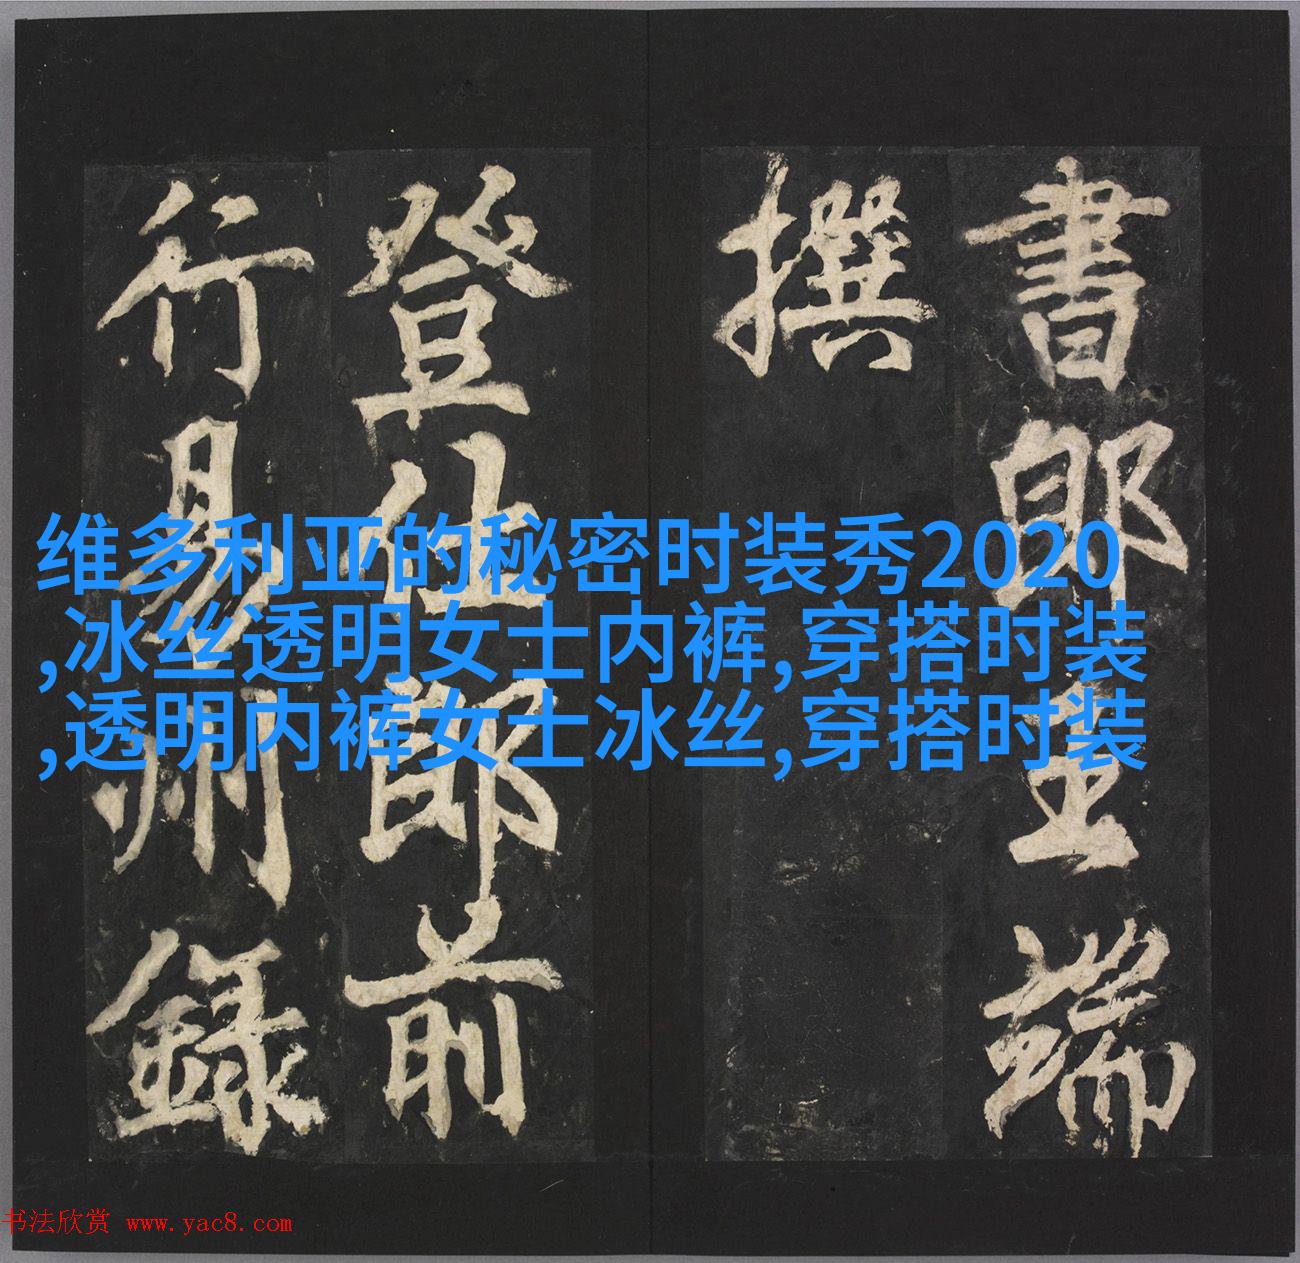 書郎王端
撰
登仕郎前
行易州錄
维多利亚的秘密时装秀2020
,冰丝透明女士内裤,穿搭时装
,透明内裤女士冰丝,穿搭时装
书法欣赏 www.yac8.com